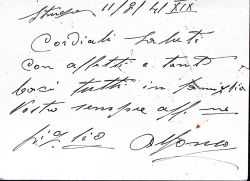 11/9/41 XIX
Cordiali saluti
con affetti e tanti
baci tutti in famiglia
Vostro sempre aff.mo
figlio Alfonso